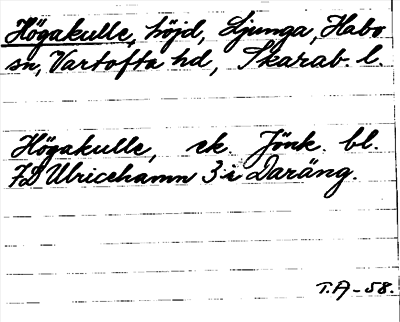 Högakulle, höjd, Ljunga, Habo
sn, Vartofta hd, Skarab. l.
Högakulle, ek. Jönk. bl.
7d Ulricehamn 3:i Daräng.
T.A-58.